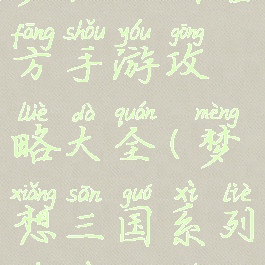 fāng shǒu yóu gōng
方手游攻
lüè dà quán mèng
略大全(梦
xiǎng sān guó xì liè
想三国系列